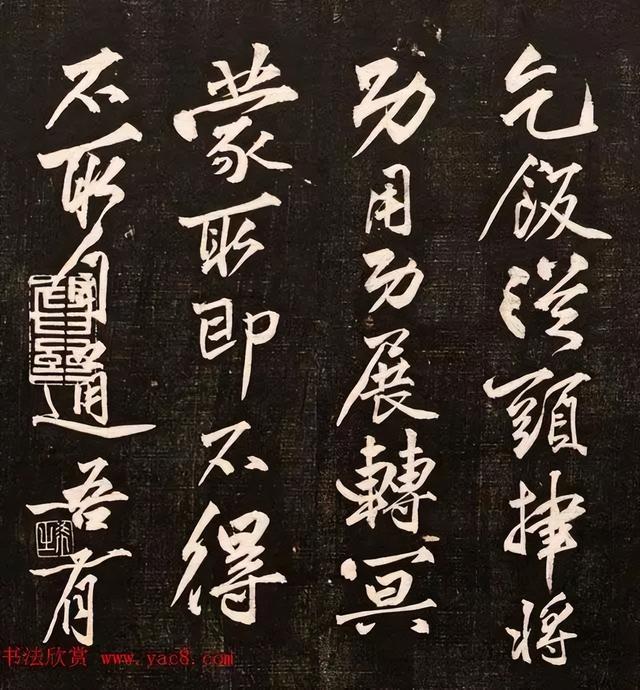 乞飯從頭將
功用功展轉冥
蒙取即不得
不取自通吾有
书法欣赏 www.yac8.com